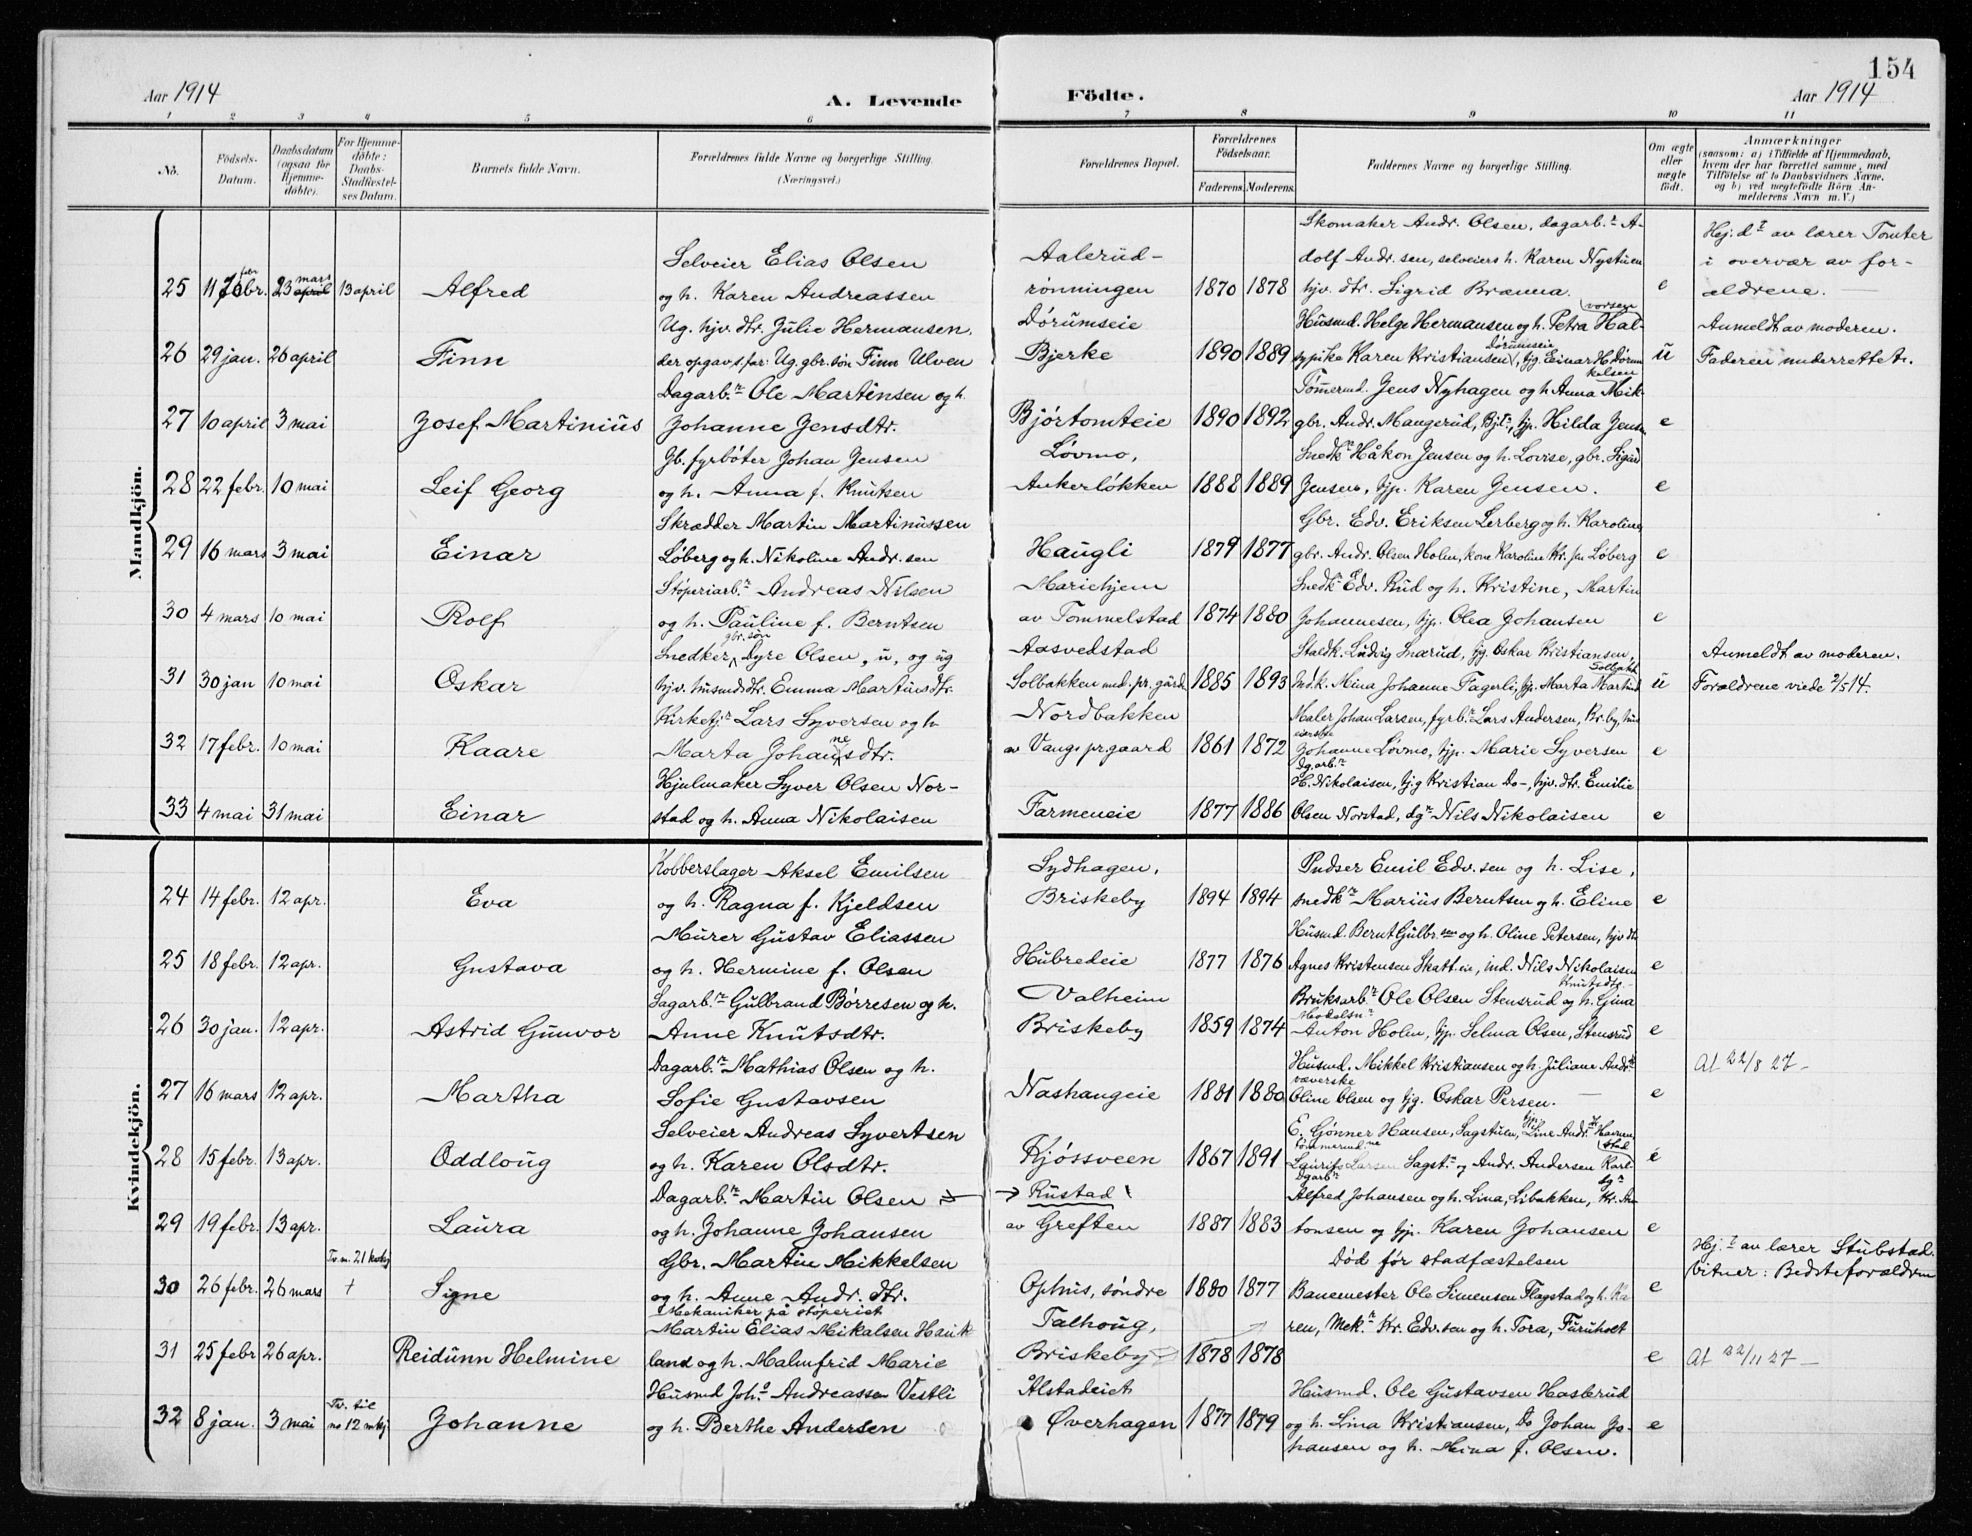 154
Aar 1914
A. Levende
Födte.
Aar 1914
1 2 3 4 5 6 7 8 9 10 11
No.
Födsels-
Datum.
Daabsdatum
(ogsaa for
Hjemme-
döbte).
For Hjemme-
döbte:
Daabs-
Stadfæstel-
ses Datum.
Barnets fulde Navn.
Forældrenes fulde Navne og borgerlige Stilling.
(Næringsvei.)
Forældrenes Bopæl.
Forældrenes
Födselsaar.
Faderens. Moderens.
Faddernes Navne og borgerlige Stilling.
Om ægte
eller
uægte
født.
Anmærkninger
(saasom: a) i Tilfælde af Hjemmedaab,
hvem der har forrettet samme, med
Tilföielse af to Daabsvidners Navne,
og b) ved uægtefödte Börn An-
melderens Navn m. V.)
Mandkjön.
Skomaker Andr. Olsen, dagarb.r A-
Selveier Elias Olsen
Aalerud-
dolf Andr.sen, selveiers h. Karen Nystuen
Hej.dt av lærer Tomter
i overvær av for-
25 11 febr. 23 mars april 13 april Alfred og h. Karen Andreassen rönningen 1870 1878 hjv. dtr. Sigrid Brænna. e ældrene. —
Ug. hjv. dtr. Julie Hermansen, Dörumseie Husmd. Helge Hermansen og h. Petra Hal-
vorsen
Anmeldt av moderen.
26 29 jan. 26 april Finn der opgav s. far: Ug. gbr. sön Finn Ulven Bjerke 1890 1889 sypike Karen Kristiansen Dörumseie, tjg Einar H Dörum u Faderen underrettet.
Dagarb.r Ole Martinsen og h. Tömmermd. Jens Nyhagen og h Anna Mik-
kelsen
27 10 april 3 mai Josef Martinius Johanne Jensdtr. Björtomteie 1890 1892 gbr. Andr. Mangerud, Bjt., tjp. Hilda Jensen e
Gb. fyrböter Johan Jensen Lövmo, Snedk.r Håkon Jensen og h. Lovise, gbr. Sigurd
28 22 febr. 10 mai Leif Georg og h. Anna f. Knutsen Ankerlökken 1888 1889 Jensen, tjp. Karen Jensen. e
Skrædder Martin Martinussen Gbr. Edv. Eriksen Lerberg og h. Karoline,
29 16 mars 3 mai Einar Löberg og h. Nikoline Andr.sen Haugli 1879 1877 gbr. Andr. Olsen Holm, kone Karoline Kr.sen Löberg e
Stöperiarb.r Andreas Nilsen Mariehjem Snedk. Edv. Rud og h. Kristine, Martin
30 4 mars 10 mai Rolf og h. Pauline f. Berntsen av Tommelstad 1874 1880 Johannesen, tjp. Olea Johansen e
Snedker gbr.sön Dyre Olsen, u, og ug Aasvedstad Staldk. Ludvig Snærud, tjg. Oskar Kristiansen,
Solbakk.
Anmeldt av moderen.
31 30 jan 10 mai Oskar hjv. husmds dtr. Emma Martinsdtr. Solbakken und. pr. gård 1885 1893 Indk. Mina Johanne Fagerli, tjp. Marta Martins. u Forældrene viede 2/5 14.
Kirketj.r Lars Syversen og h Nordbakken Maler Johan Larsen, fyrb.r Lars Andersen, Br.by,
32 17 febr. 10 mai Kaare Marta Johannesdtr. av Vangs pr.gaard 1861 1872 Johanne Lövmo, tjp. Marie Syversen e
Hjulmaker Syver Olsen Nor- Dg.arb.r H. Nikolaisen, tjg Kristian Do–, hjv. dtr. Emilie
33 4 mai 31 mai Einar stad og h. Anna Nikolaisen Farmeneie 1877 1886 Olsen Norstad, dg.r Nils Nikolaisen e
Kvindekjön.
Kobberslager Aksel Emilsen Sydhagen, Pudser Emil Edv.sen og h. Lise,
24 14 febr. 12 apr. Eva og h. Ragna f. Kjeldsen Briskeby 1894 1894 snedk.r Marius Berntsen og h. Eline e
Murer Gustav Eliassen Husmd. Bernt Gulbr.sen og h. Oline Petersen, hjv dtr
25 18 febr. 12 apr. Gustava og h. Hermine f. Olsen Hubredeie 1877 1876 Agnes Kristensen Skatt.eie, ind. Nils Nikolaisen e
Knutsdtr.
Sagarb.r Gulbrand Börresen og h. Valheim Bruksarb.r Ole Olsen Stensrud og h. Gina
26 30 jan. 12 apr. Astrid Gunvor Anne Knutsdtr. Briskeby 1859 1874 Modelsn.r Anton Holm, tjp. Selma Olsen, Stensrud e
Dagarb.r Mathias Olsen og h. Husmd. Mikkel Kristiansen og h. Juliane Andr.
At 22/8 27 –
27 16 mars 12 apr. Martha Sofie Gustavsen Nashaugeie 1881 1880 væverske Oline Olsen og tjg. Oskar Persen. — e
Selveier Andreas Syvertsen E. Gjönner Hansen, Sagstuen, Line Andr.
28 15 febr. 13 apr. Oddloug og h. Karen Olsdtr. Kjössveen 1867 1891 Laurits Larsen Sagst. og Andr. Andersen e
Dagarb.r Martin Olsen → Rustad Dgarb.r Alfred Johansen og h. Lina, Libakken, Kr. An-
29 19 febr. 13 apr. Laura og h. Johanne Johansen av Greften 1887 1883 tonsen og tjp. Karen Johansen e
Tv. m. 21 kvkj Gbr. Martin Mikkelsen Död för stadfæstelsen
Hj.t av lærer Stubstad.
Vitner: Bedsteforældrene
30 26 febr. 26 mars + Signe og h. Anne Andr. dtr. Ophus, söndre 1880 1877 Banemester Ole Simensen Flagstad og h. Ka- e
Mekaniker på stöperiet
Martin Elias Mikalsen Hauk- Talhoug, ren, Mek.r Kr. Edv.sen og h. Tora, Furuholt
31 25 febr 26 apr. Reidunn Helmine land og h. Malmfrid Marie Briskeby 1878 1878 e At 22/11 27 –
Husmd Joh.s Andreassen Vestli Ålstadeiet Husmd. Ole Gustavsen Hasterud
32 8 jan. 3 mai Tv. til no 12 mkj Johanne og h. Berthe Andersen Överhagen 1877 1879 og h. Lina Kristiansen, Do Johan Jo- e
hansen og h. Mina f. Olsen.